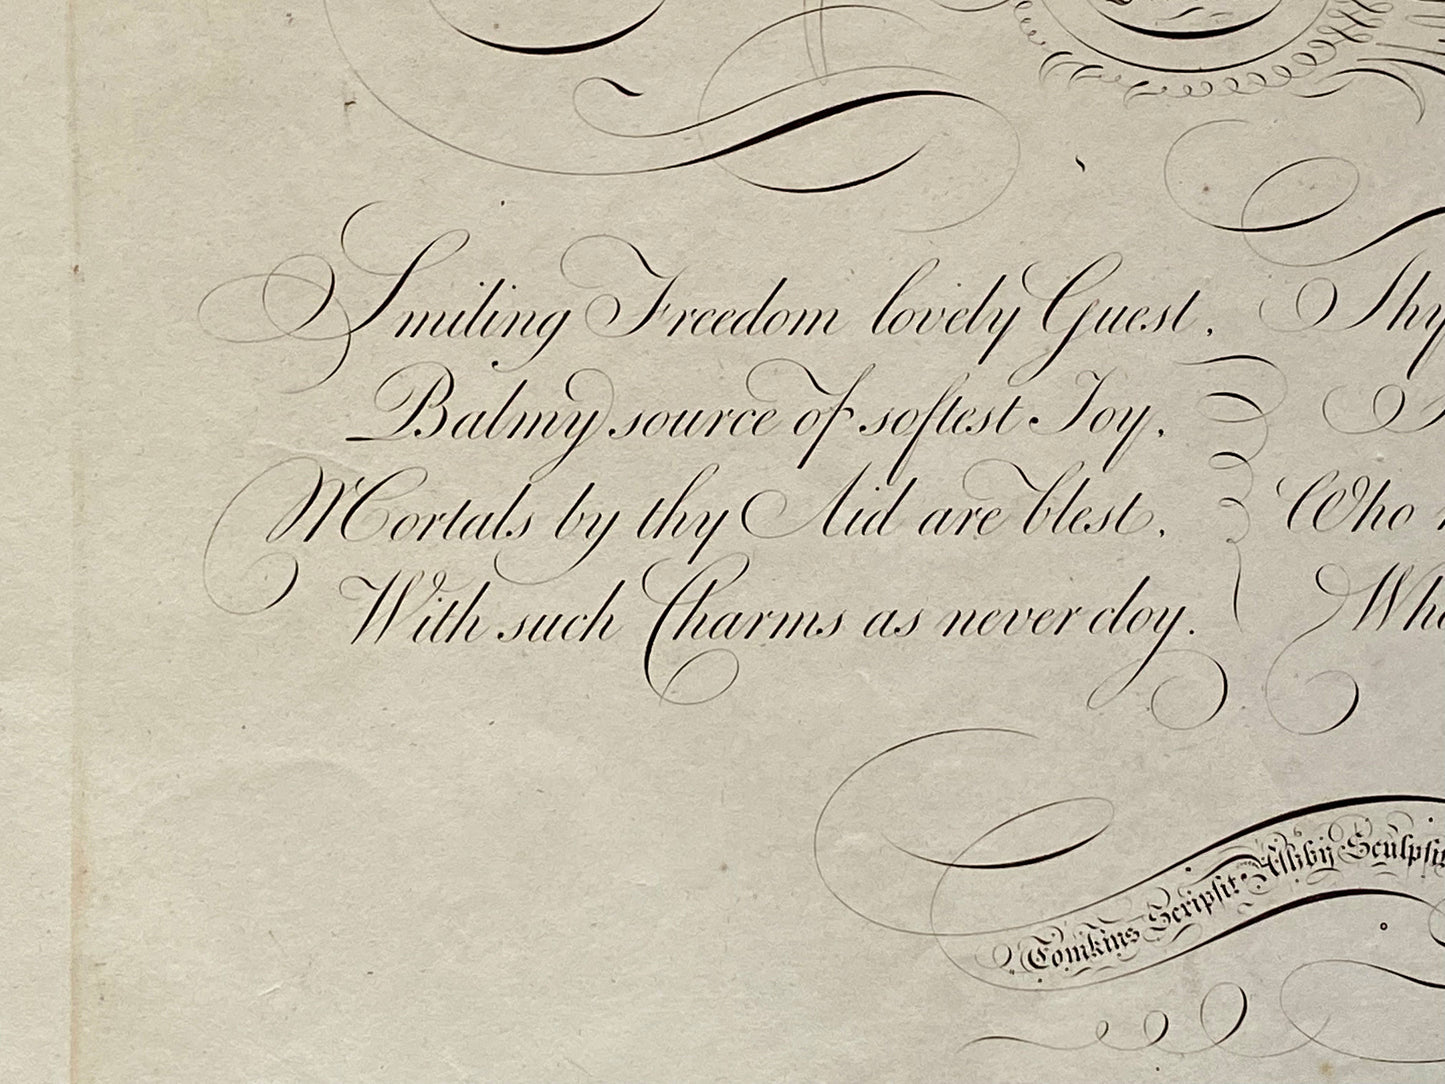 Smiling Freedom lovely Guest,
Balmy source of softest Joy,
Mortals by thy Aid are blest,
With such Charms as never cloy.
Thy
Who
Tomkins Scripsit. Ashby Sculpsit